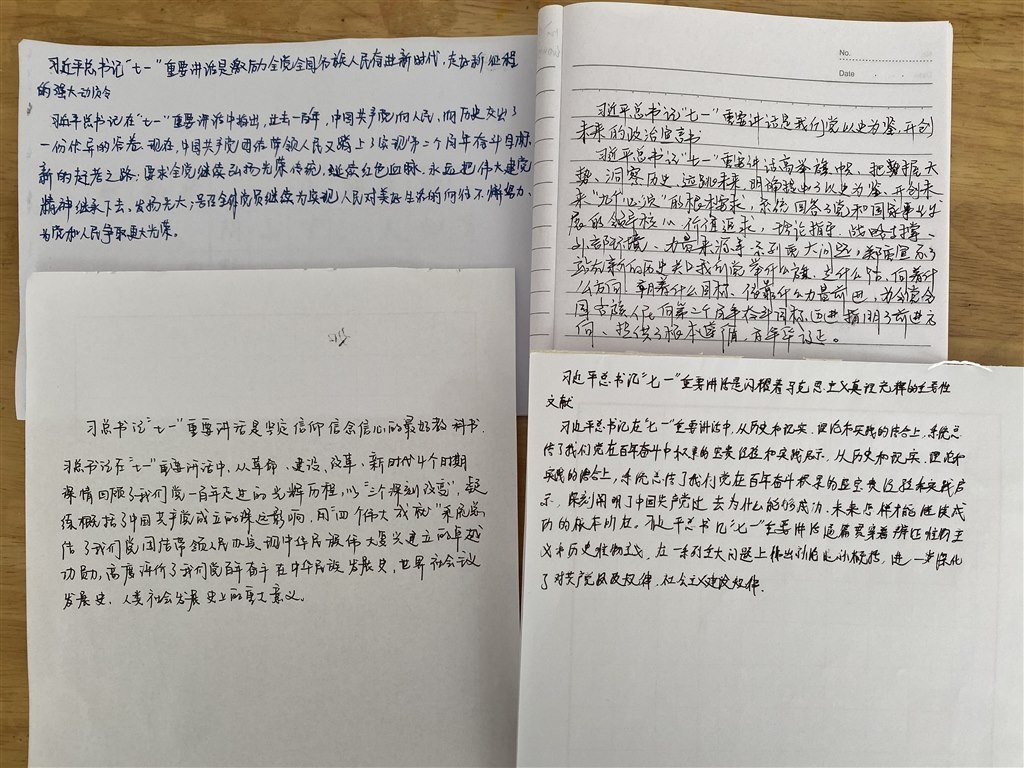 习近平总书记"七一"重要讲话是激励全党全国各族人民奋进新时代,走好新征程
的强大动员令
习近平总书记在"七一"重要讲话中指出,过去一百年,中国共产党向人民,向历史交出了
一份优异的答卷.现在,中国共产党团结带领人民又踏上了实现第二个百年奋斗目标
新的赶考之路;要求全党继续弘扬光荣传统,赓续红色血脉,永远把伟大建党
精神继承下去、发扬光大;号召全体党员继续为实现人民对美好生活的向往不懈努力、
为党和人民争取更大光荣。
No.
Date
习近平总书记"七一"重要讲话是我们党以史为鉴、开创
未来的政治宣言书
习近平总书记"七一"重要讲话高举旗帜、把握大
势、洞察历史、远眺未来,明确提出了以史为鉴、开创未
来"九个必须"的根本要求,系统回答了党和国家事业发
展的领导核心、价值追求、理论指导、战略支撑、
外部环境、力量来源等一系列重大问题,郑重宣示了
站在新的历史关头我们党举什么旗、走什么路、向着什
么方向、朝着什么目标、依靠什么力量前进,为全党全
国各族人民向第二个百年奋斗目标迈进指明了前进方
向、提供了根本遵循,
习总书记"七一"重要讲话是坚定信仰信念信心的最好教科书.
习总书记在"七一"重要讲话中,从革命、建设、改革、新时代4个时期
深情回顾了我们党一百年走过的光辉历程,以"三个深刻改变",凝
练概括了中国共产党成立的深远影响,用"四个伟大成就"系统总
结了我们党团结带领人民为实现中华民族伟大复兴建立的卓越
功勋,高度评价了我们党百年奋斗在中华民族发展史,世界社会主义
发展史、人类社会发展史上的重大意义。
习近平总书记"七一"重要讲话是闪耀着马克思主义真理光辉的重要性
文献
习近平总书记在"七一"重要讲话中,从历史和现实、理论和实践的结合上,系统总
结了我们党在百年奋斗中积累的宝贵经验和实践启示,从历史和现实、理论和
实践的结合上,系统总结了我们党在百年奋斗积累的宝贵经验和实践启
示,深刻阐明了中国共产党过去为什么能够成功、未来怎样才能继续成
功的根本所在。习近平总书记"七一"重要讲话通篇贯穿着辩证唯物主
义和历史唯物主义,在一系列重大问题上提出
进一步深化
了对共产党执政规律,社会主义建设规律.